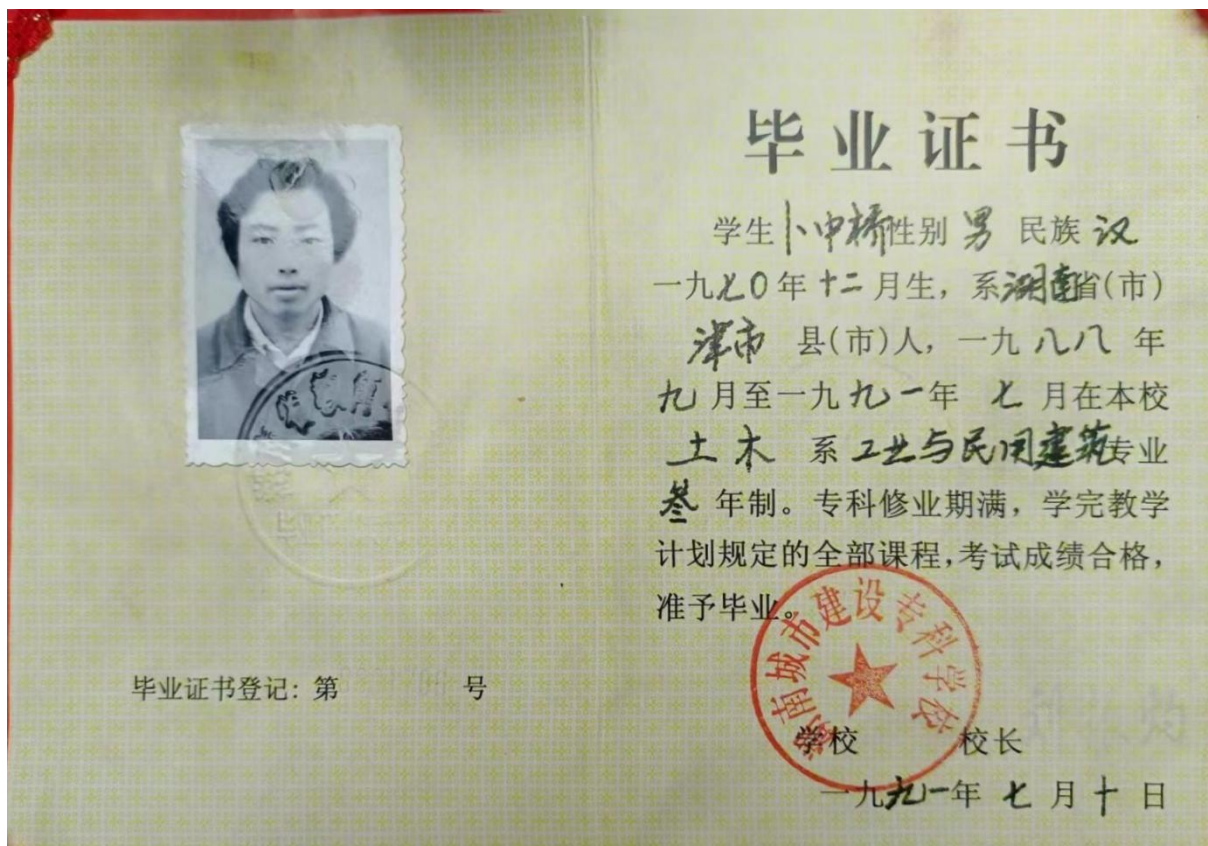 毕业证书
学生卜中桥性别男 民族汉
一九七0年十二月生，系湖南省(市)
津市 县(市)人，一九八八年
九月至一九九一年 七月在本校
土木 系工业与民用建筑专业
叁年制。专科修业期满，学完教学
计划规定的全部课程，考试成绩合格，
准予毕业。
湖南城市建设专科学校
学校 校长
一九九一年七月十日
毕业证书登记：第 号